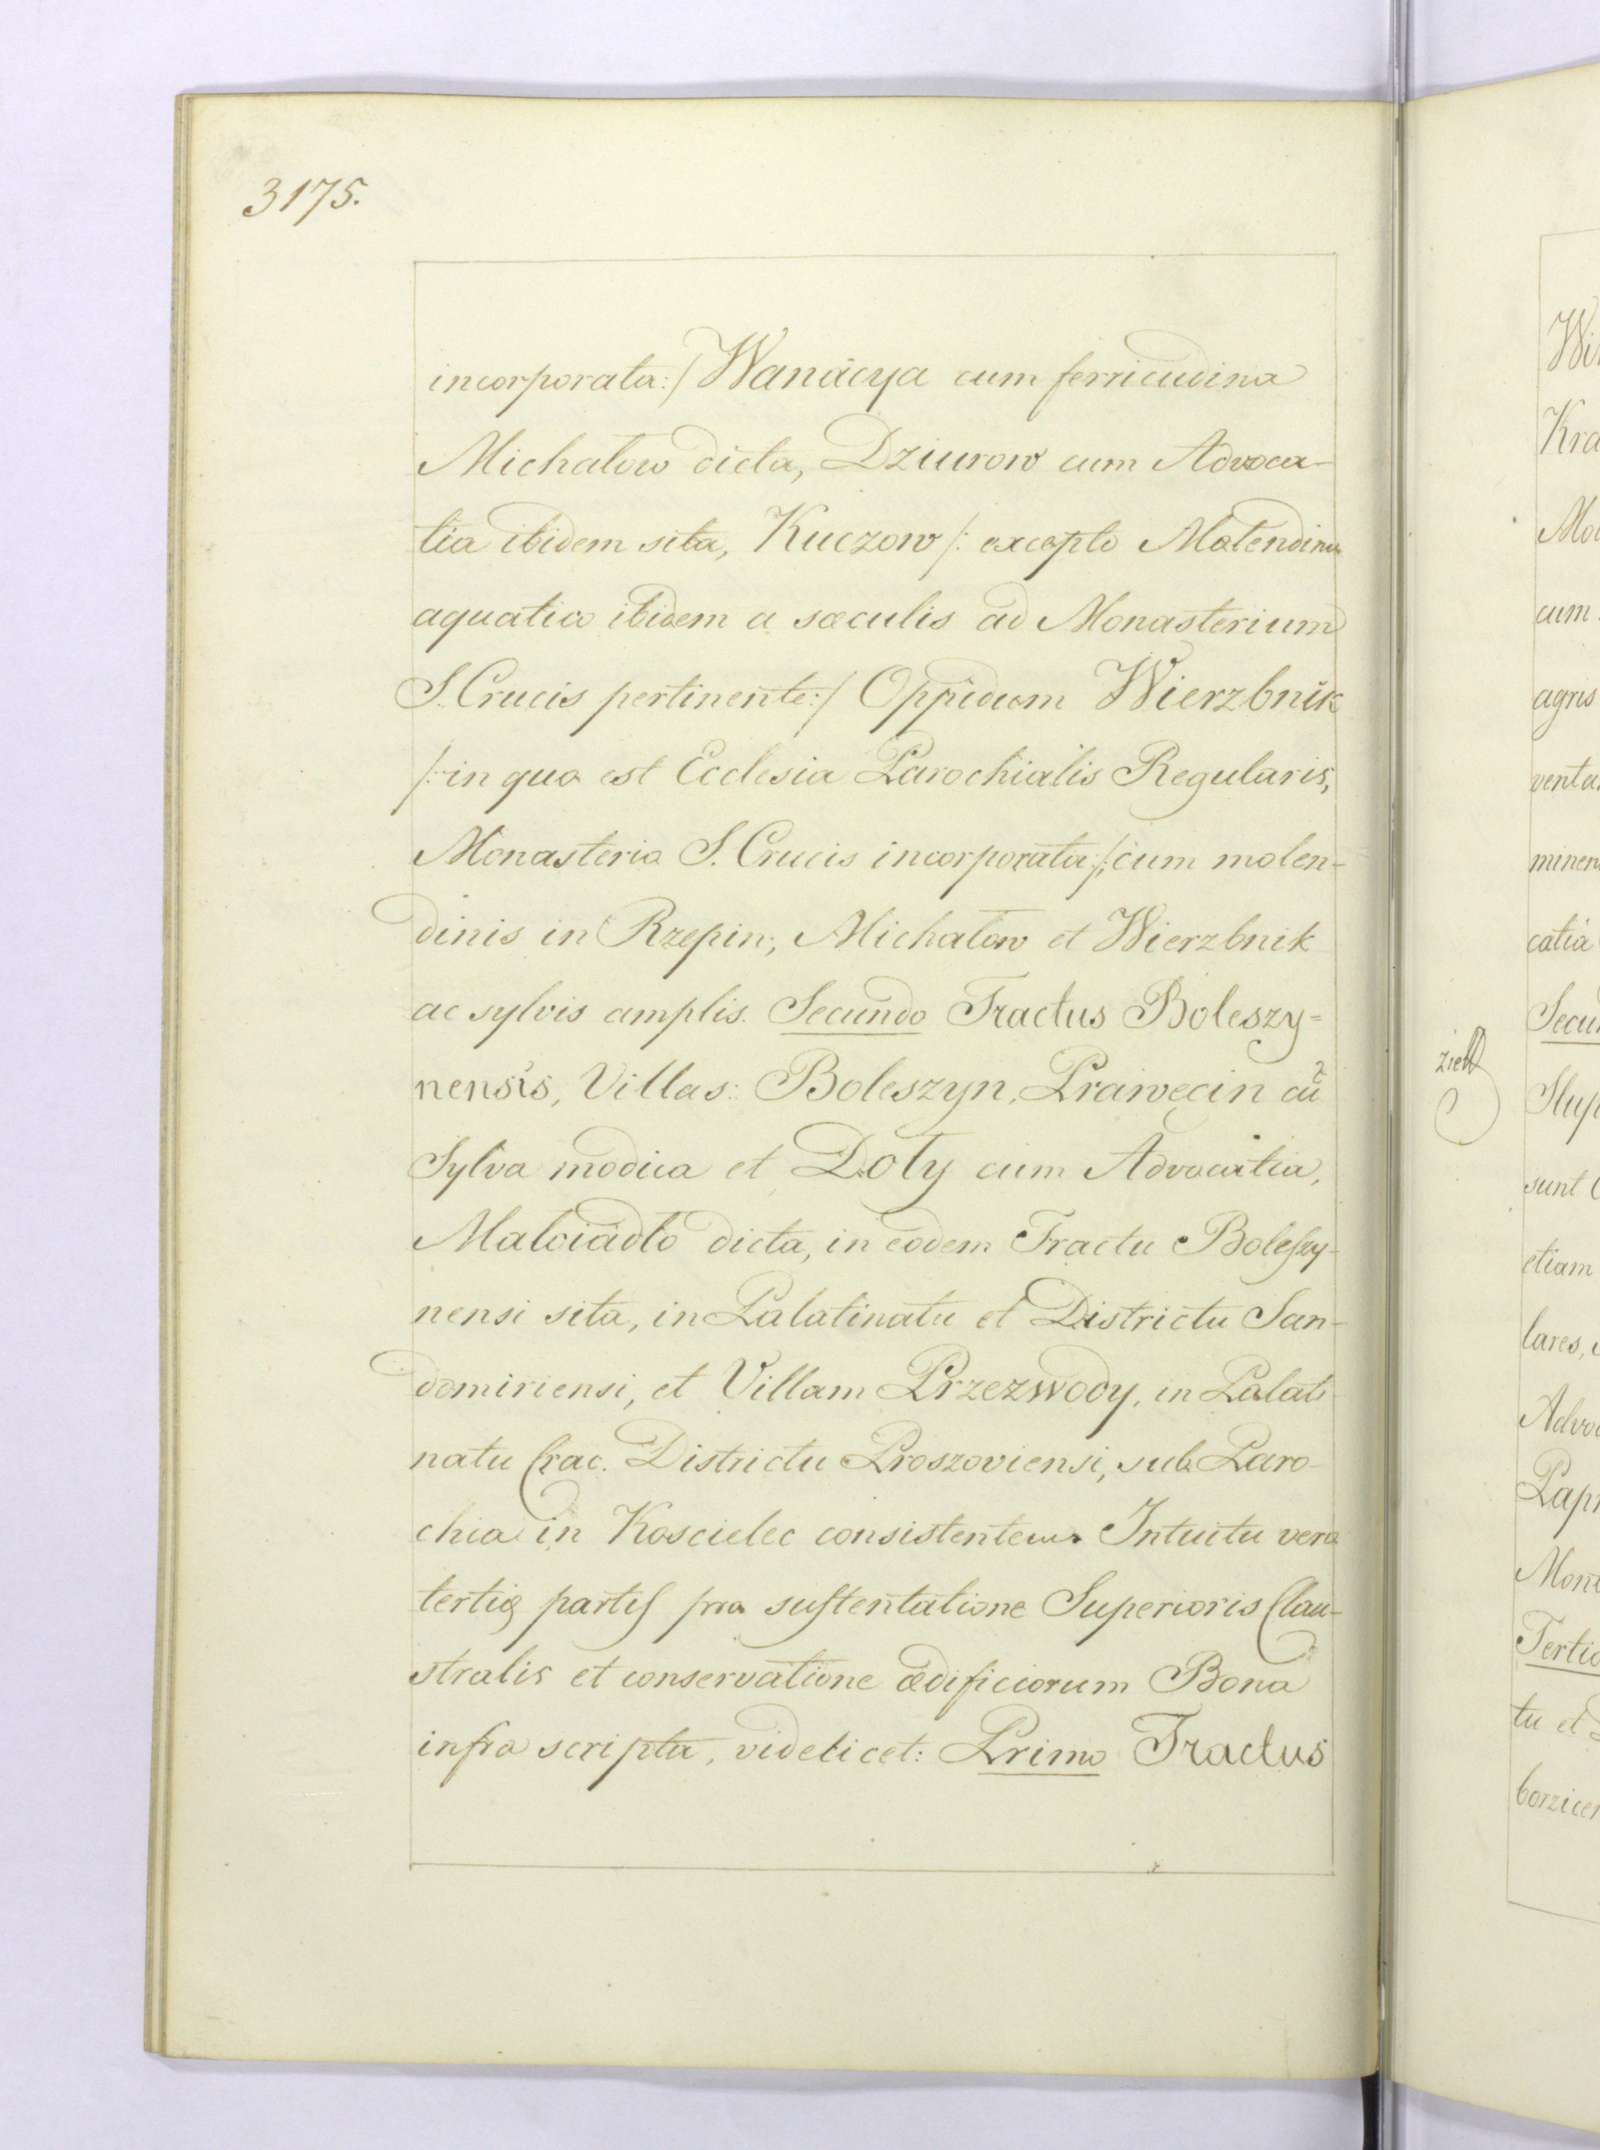 3175.
incorporata:/ Wanácya cum ferricudina
Michałow dicta, Dziurow cum Advoca-
tia ibidem sita, Kuczow /: excepto Molendino
aquatico ibidem a sæculis ad Monasterium
S. Crucis pertinente:/ Oppidum Wierzbnik
/: in quo est Ecclesia Parochialis Regularis,
Monasterio S. Crucis incorporata:/, cum molen-
dinis in Rzepin, Michałow et Wierzbnik
ac sylvis amplis. Secundo Tractus Boleszy-
nensis, Villas: Boleszyn, Prawęcin cũ
Sylva modica et Doły cum Advocatia,
dicta, in eodem Tractu Boleszy-
nensi sita, in Palatinatu et Districtu San-
domiriensi, et Villam Przezwody, in Palati-
natu Crac. Districtu Proszoviensi, sub Paro-
chia in Koscielec consistentem. Intuitu vero
tertię partis pro sustentatione Superioris Clau-
stralis et conservatione ædificiorum Bona
infra scripta, videlicet: Primo Tractus
Wi
Kra
cum
agris
venta
miner
catia
Secu
Słup
sunt
etiam
lares,
Advo
Papi
Mon
Tertio
tu et
borzicen